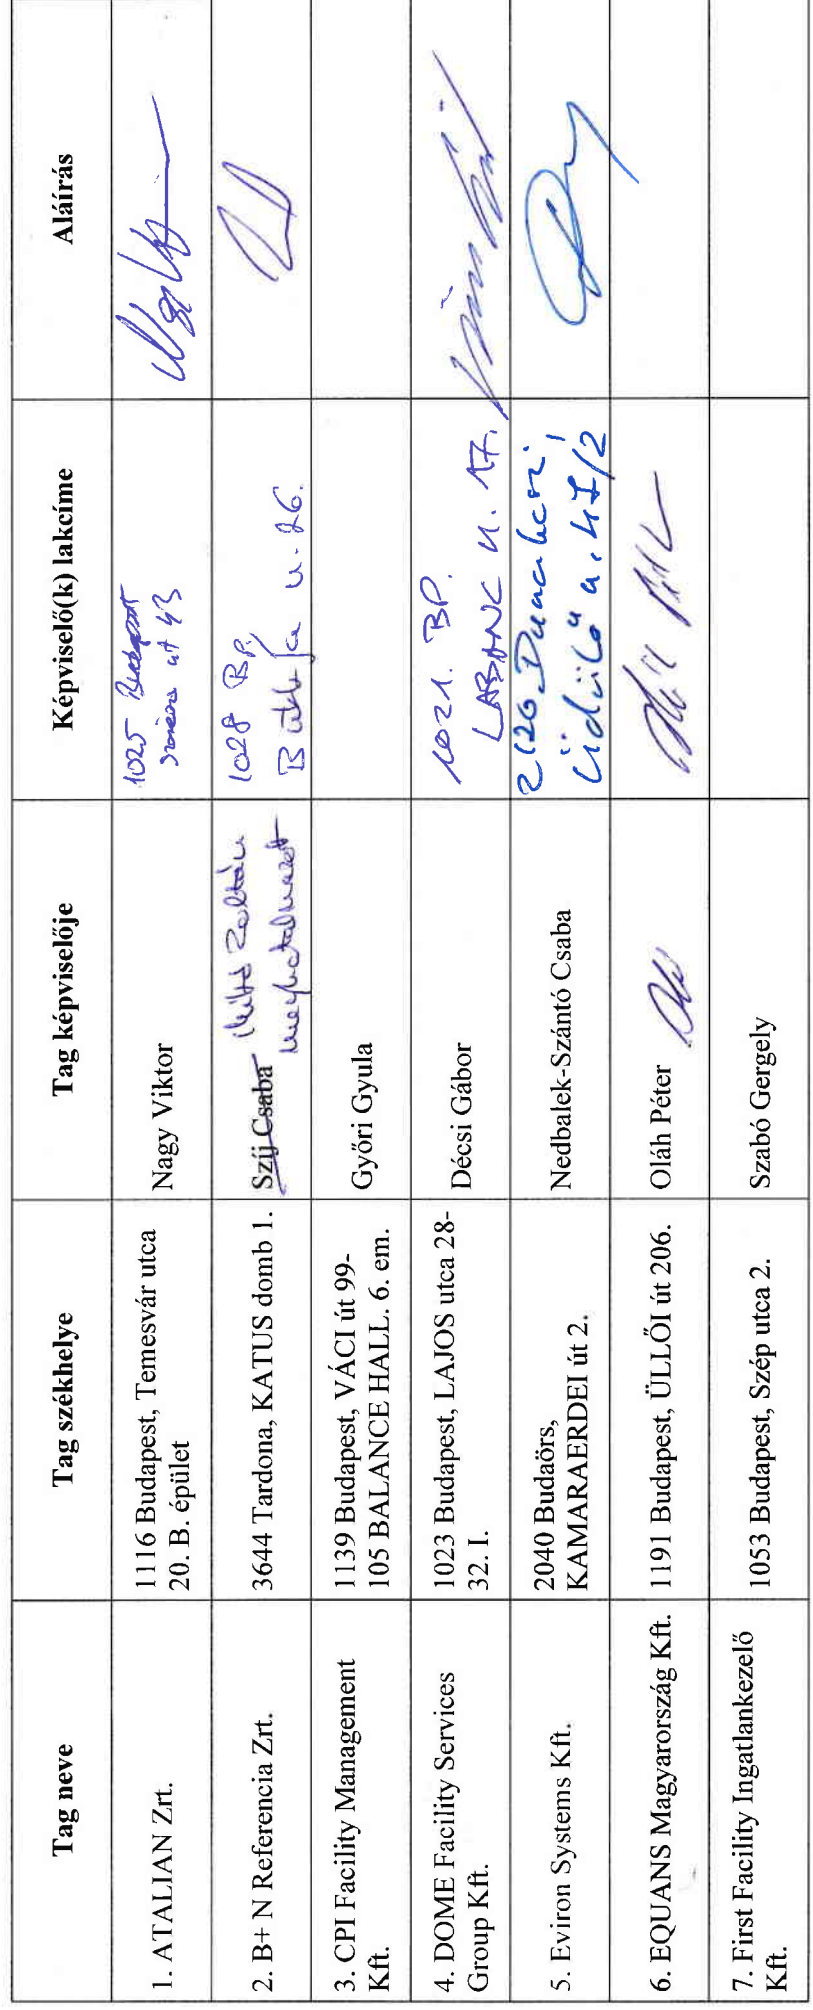 Tag neve
Tag székhelye
Tag képviselője
Képviselő(k) lakcíme
Aláírás
1. ATALIAN Zrt.
1116 Budapest, Temesvár utca
20. B. épület
Nagy Viktor
1025 Budapest
út 43
2. B+ N Referencia Zrt.
3644 Tardona, KATUS domb 1.
Szíj Csaba
Zoltán
meghatalmazott
1028 BP,
Bükkfa u. 26.
3. CPI Facility Management
Kft.
1139 Budapest, VÁCI út 99-
105 BALANCE HALL. 6. em.
Győri Gyula
4. DOME Facility Services
Group Kft.
1023 Budapest, LAJOS utca 28-
32. I.
Décsi Gábor
1021. BP.
LABANC U. 17.
5. Eviron Systems Kft.
2040 Budaörs,
KAMARAERDEI út 2.
Nedbalek-Szántó Csaba
2120. Dunakeszi,
Üdülő u. 47/2
6. EQUANS Magyarország Kft.
1191 Budapest, ÜLLŐI út 206.
Oláh Péter
7. First Facility Ingatlankezelő
Kft.
1053 Budapest, Szép utca 2.
Szabó Gergely